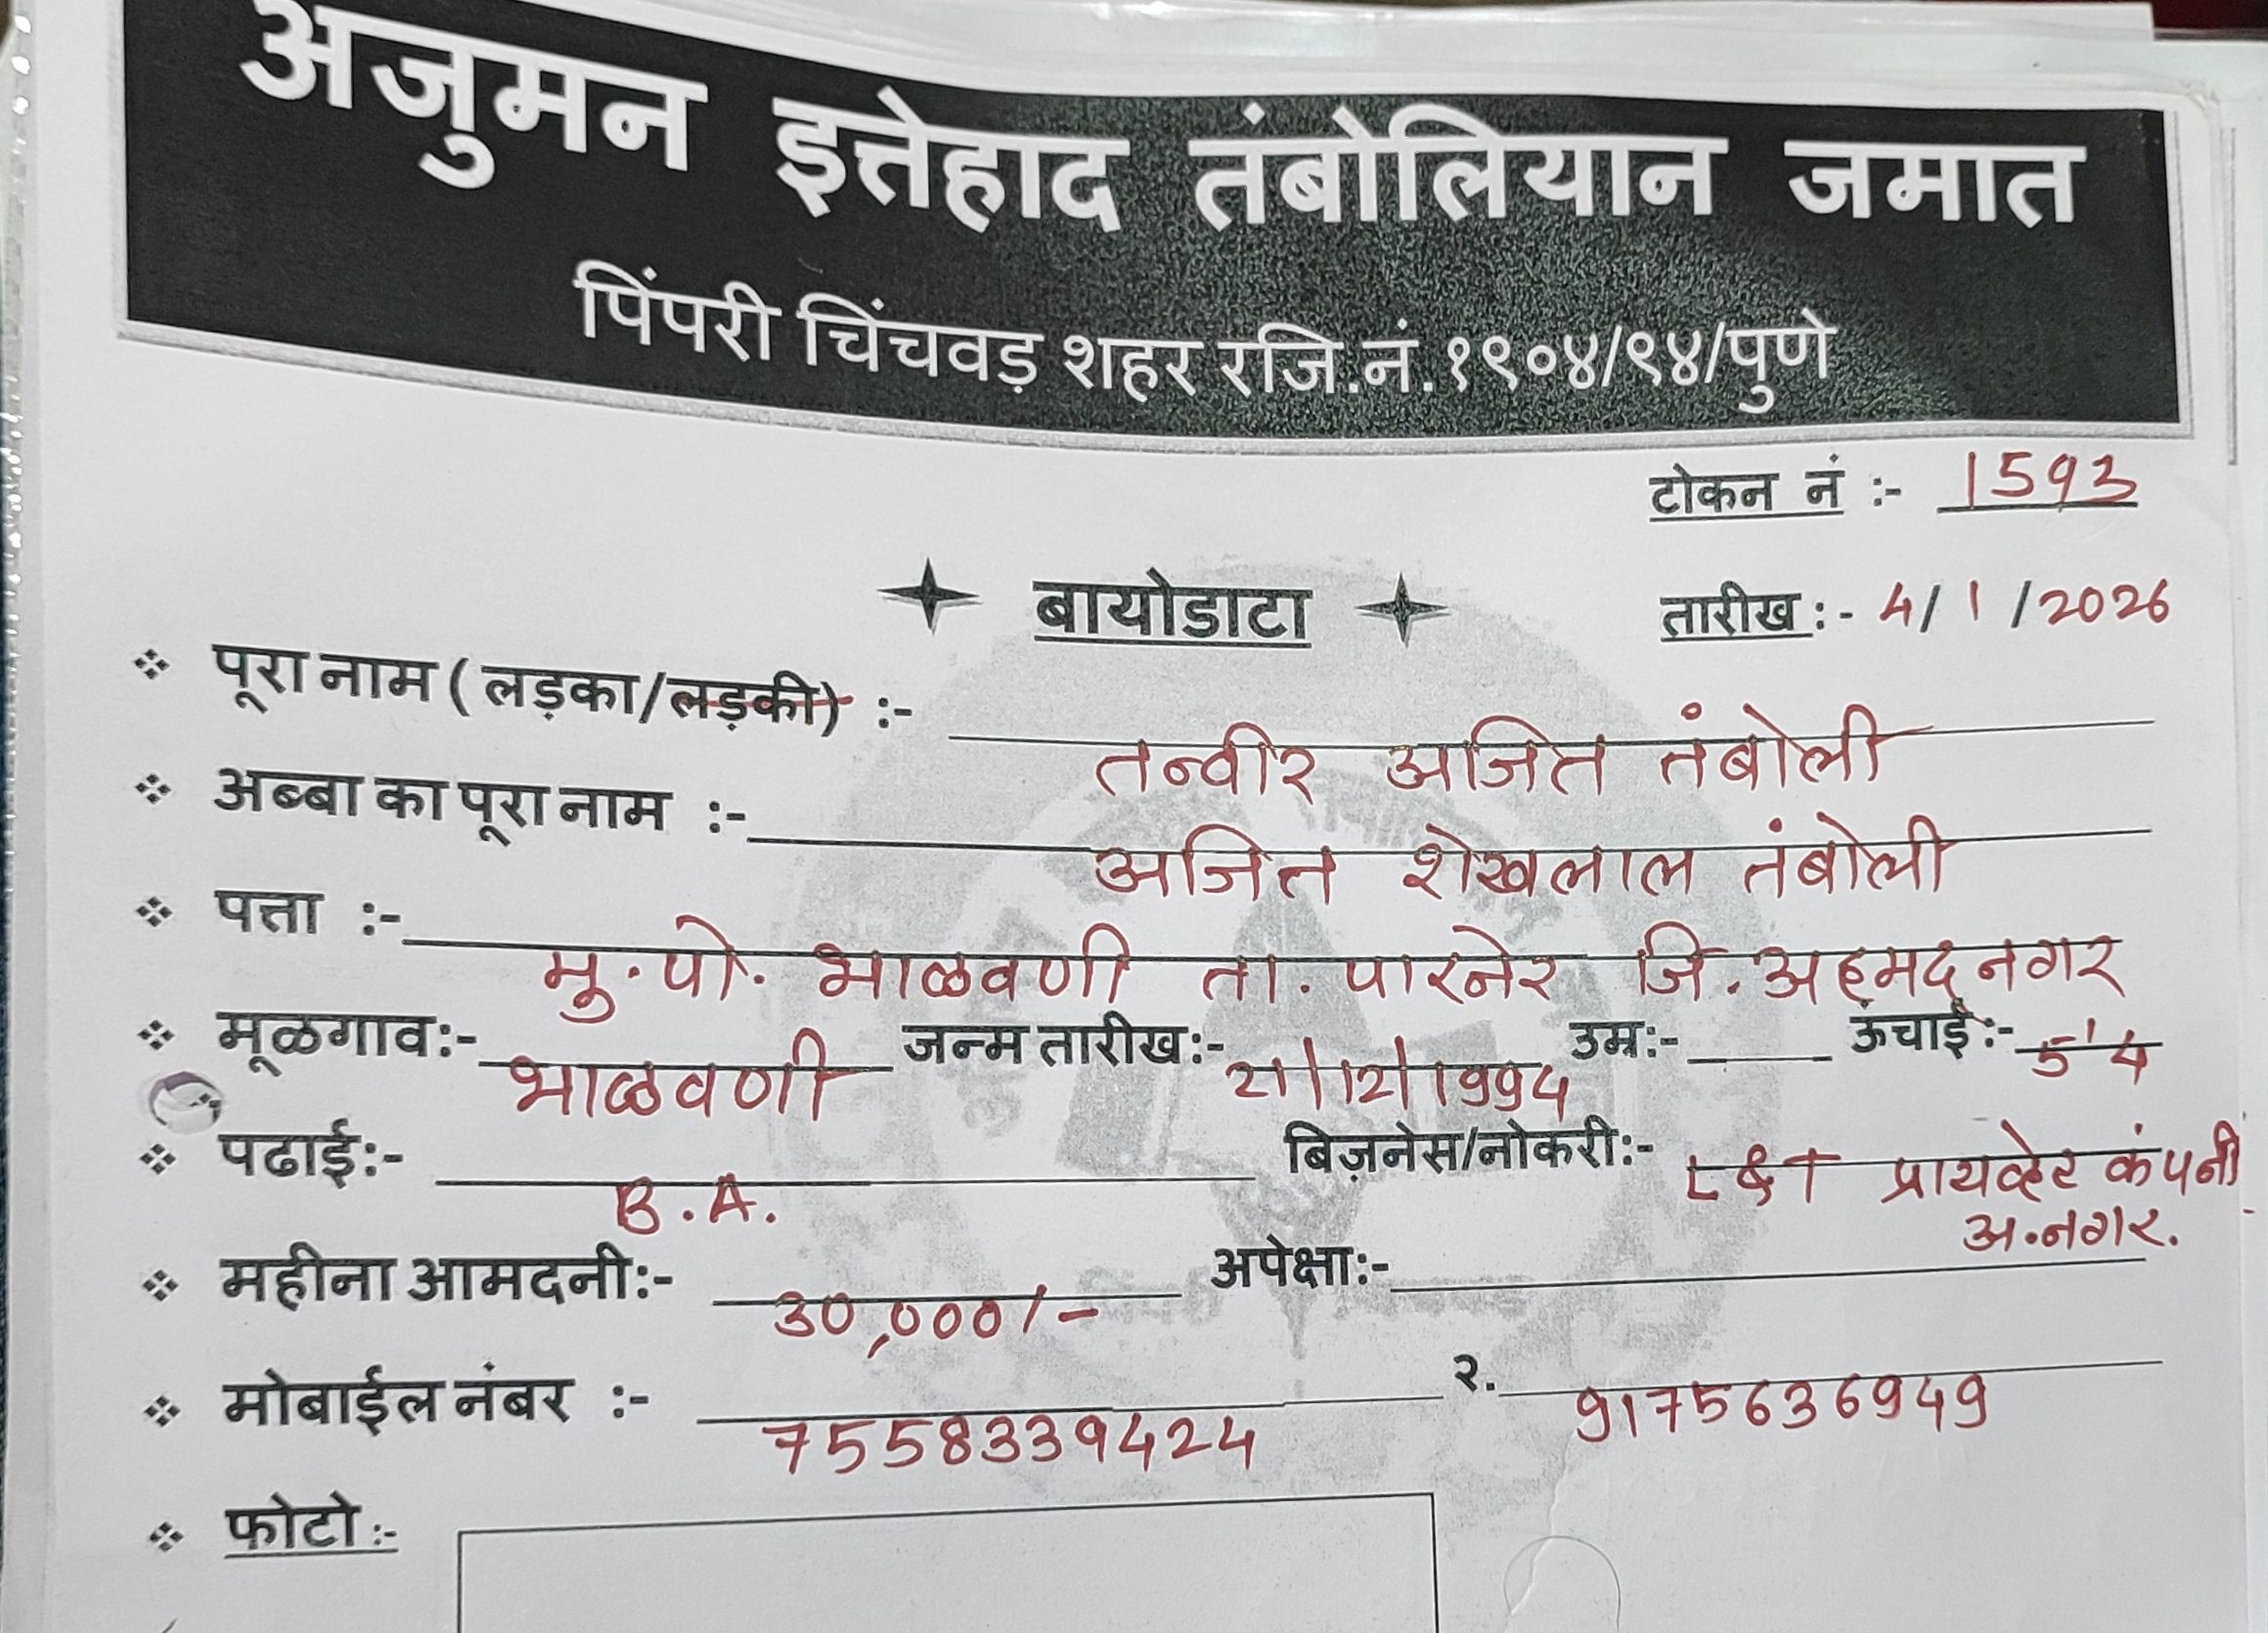 अजुमन इत्तेहाद तंबोलियान जमात
पिंपरी चिंचवड़ शहर रजि.नं.१९०४/९४/पुणे
टोकन नं :- 1593
बायोडाटा
तारीख :- 4/1/2026
पूरा नाम ( लड़का/लड़की) :- तन्वीर अजित तंबोली
अब्बा का पूरा नाम :- अजित शेखलाल तंबोली
पत्ता :- मु.पो. भाळवणी ता. पारनेर जि. अहमदनगर
मूळगाव:- भाळवणी जन्म तारीख:- 21/12/1994 उम्र:- ऊंचाई:- 5'4
पढाई:- B.A. बिज़नेस/नोकरी:- L&T प्रायव्हेट कंपनी
अ.नगर.
महीना आमदनी:- 30,000/- अपेक्षा:-
मोबाईल नंबर :- 7558339424 २. 9175636949
फोटो :-